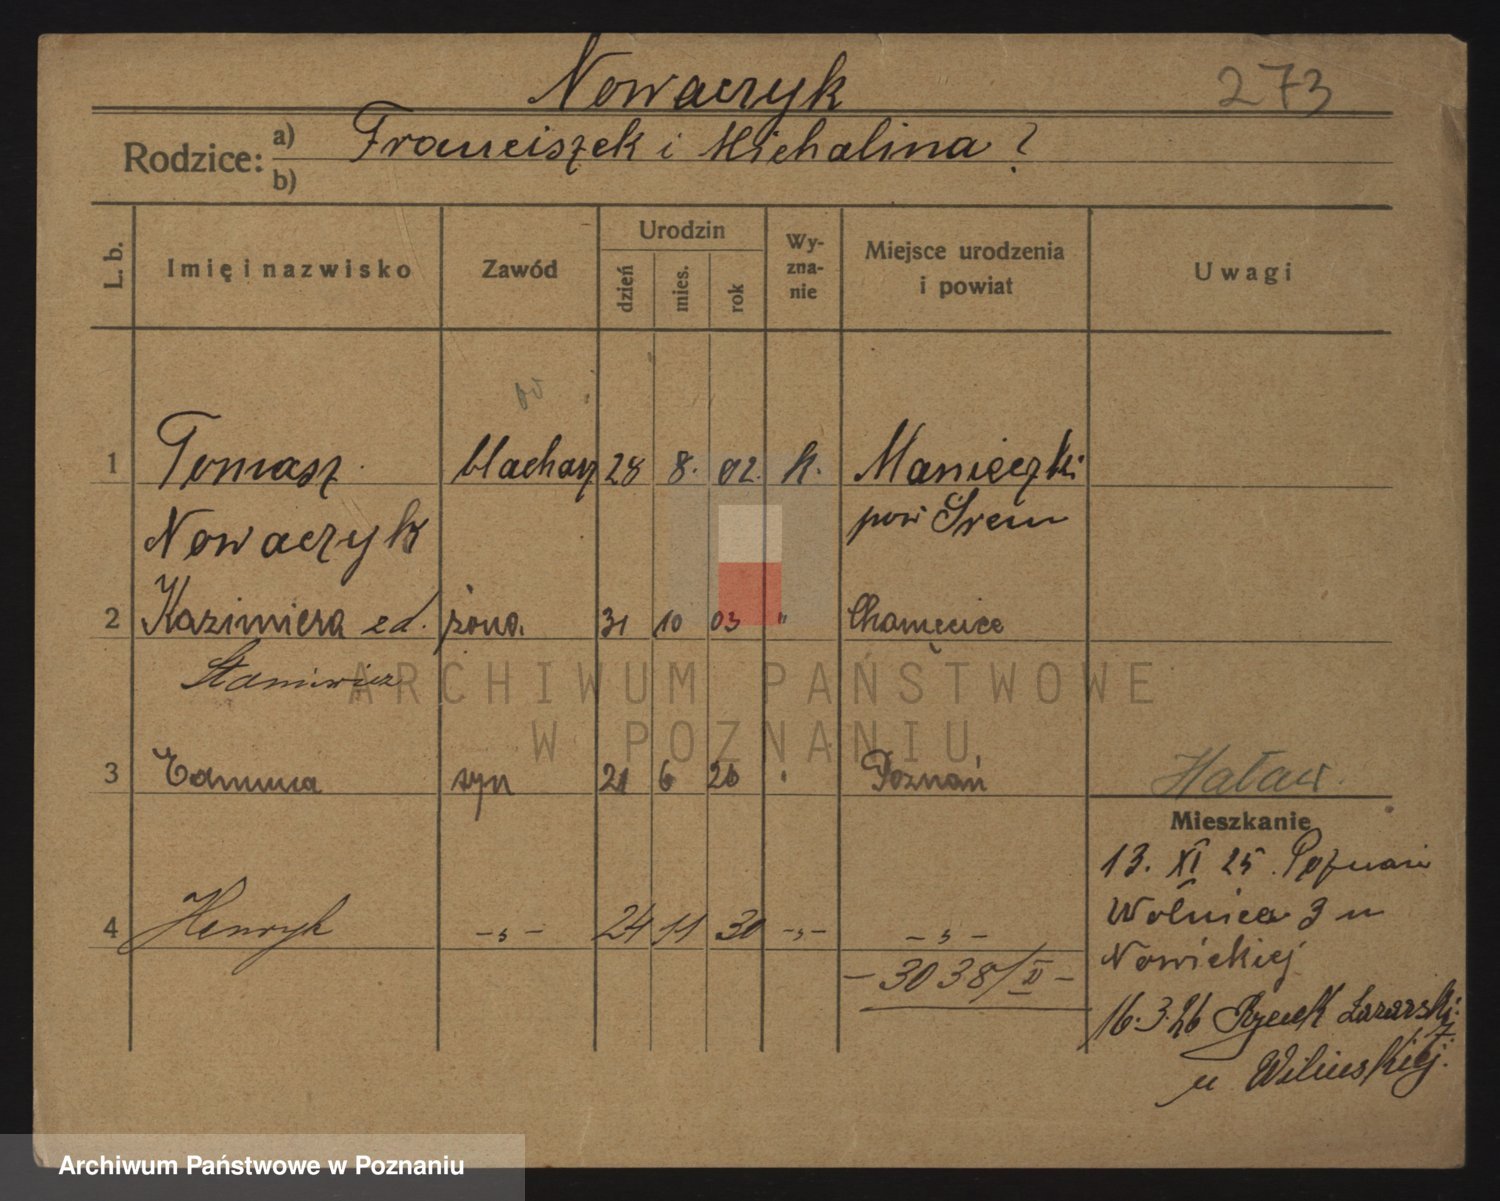 Nowaczyk
273
Rodzice: a) Franciszek i Michalina ?
b)
L. b.
Imię i nazwisko
Zawód
Urodzin
dzień
mies.
rok
Wy-
zna-
nie
Miejsce urodzenia
i powiat
Uwagi
1 Tomasz blacharz 28 8. 02. k. Manieczki
Nowaczyk pow Śrem
2 Kazimiera zd. żona. 31 10 03 " Chomęcice
3 Edmund syn 21 6 26 " Poznań
Mieszkanie
13. XI 25. Poznań
Wolnica 3 u
Nowickiej
4 Henryk -„- 24 11 30 -„- -„-
- 3038/II -
16.3.26 Rynek Łazarski 7.
u Wilińskiej.
ARCHIWUM PAŃSTWOWE
W POZNANIU
Archiwum Państwowe w Poznaniu